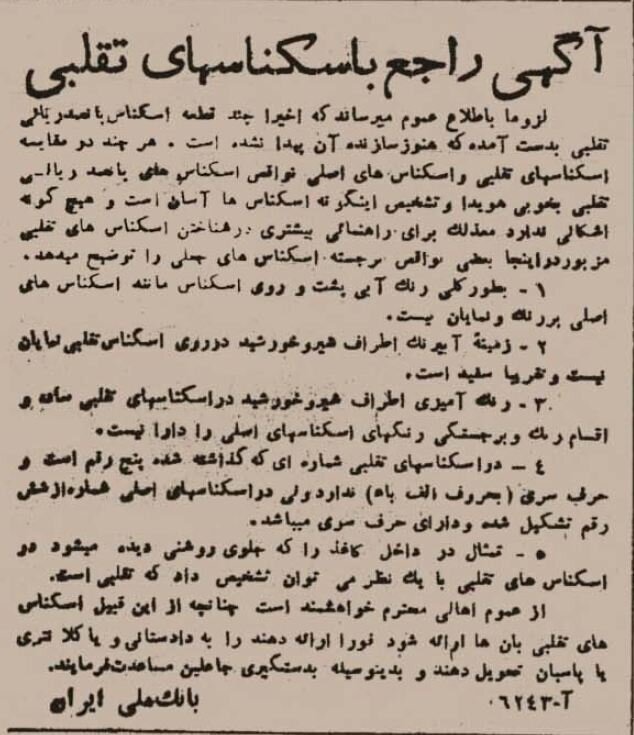 آگهی راجع باسکناسهای تقلبی
لزوما باطلاع عموم میرساند که اخیرا چند قطعه اسکناس پانصد ریالی
تقلبی بدست آمده که هنوز سازنده آن پیدا نشده است . هر چند در مقایسه
اسکناسهای تقلبی و اسکناس های اصلی نواقص اسکناس های پانصد ریالی
تقلبی بخوبی هویدا و تشخیص اینگونه اسکناس ها آسان است و هیچ گونه
اشکالی ندارد معذلك برای راهنمائی بیشتری در شناختن اسکناس های تقلبی
مزبور در اینجا بعضی نواقص برجسته اسکناس های جعلی را توضیح میدهد.
۱ - بطور کلی رنك آبی پشت و روی اسکناس مانند اسکناس های
اصلی پررنك و نمایان نیست.
۲ - زمینهٔ آبیرنك اطراف شیروخورشید در روی اسکناس تقلبی نمایان
نیست و تقریبا سفید است.
۳ - رنك آمیزی اطراف شیروخورشید در اسکناسهای تقلبی ساده و
اقسام رنك و برجستگی رنگهای اسکناسهای اصلی را دارا نیست.
٤ - در اسکناسهای تقلبی شماره ای که گذاشته شده پنج رقم است و
حرف سری (بحروف الف باء) ندارد ولی در اسکناسهای اصلی شماره از شش
رقم تشکیل شده و دارای حرف سری میباشد.
۵ - تمثال در داخل کاغذ را که جلوی روشنی دیده میشود در
اسکناس های تقلبی با یك نظر می توان تشخیص داد که تقلبی است.
از عموم اهالی محترم خواهشمند است چنانچه از این قبیل اسکناس
های تقلبی بان ها ارائه شود فورا ارائه دهند را به دادستانی و یا کلانتری
یا پاسبان تحویل دهند و بدینوسیله بدستگیری جاعلین مساعدت فرمایند.
آ-٦٢٤٣٠ بانك ملی ایران